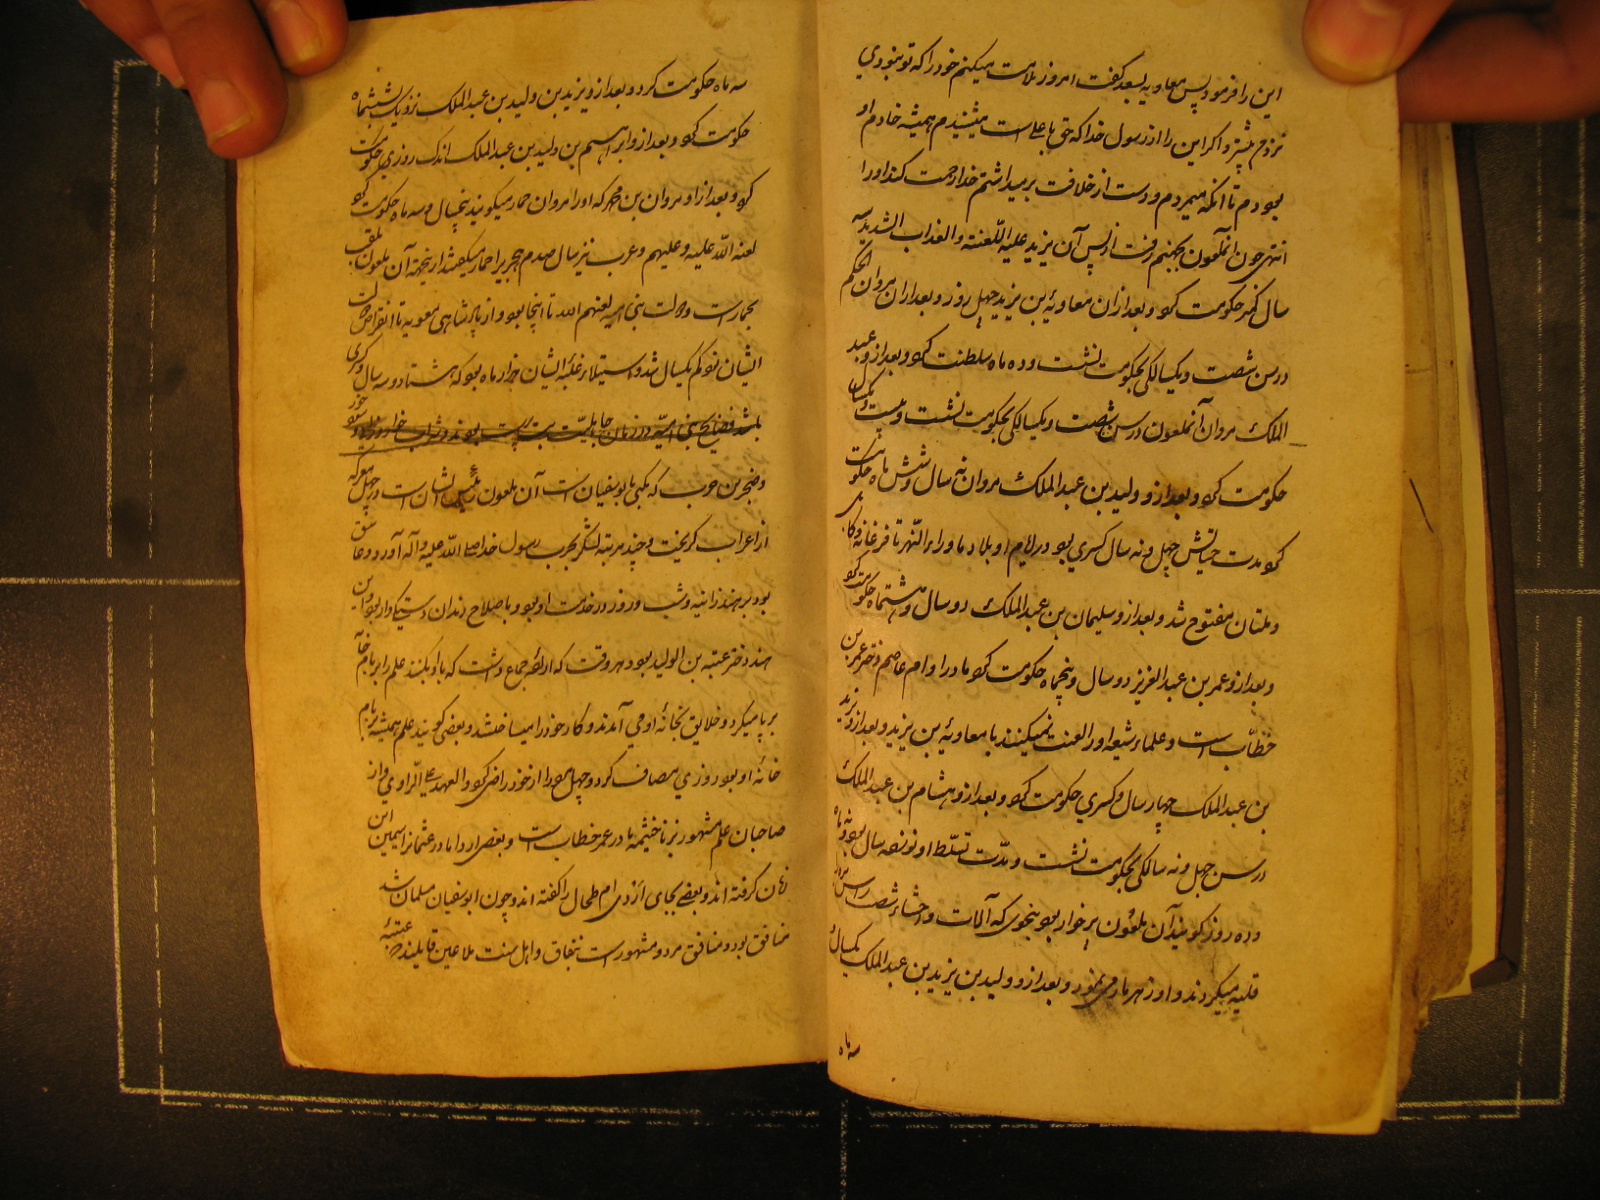 این را فرمود پس معاویه بسعد گفت امروز ملامت میکنم خود را که تو نبودی
نزد من پیشتر و اگر این را از رسول خدا که حق با علی است میشنیدم همیشه خادم او
بودم تا آنکه میمردم و دست از خلافت برمیداشتم خدا رحمت کند او را
انتهی چون آنملعون بجهنم رفت از پس آن یزید علیه اللعنه و العذاب الشدید سه
سال حکومت کرد و بعد از ان معاویهٔ بن یزید چهل روز و بعد از ان مروان الحکم
در سن شصت و یکسالگی بحکومت نشست و ده ماه سلطنت کرد و بعد از و عبد
الملک مروان آنملعون در سن شصت و یکسالگی بحکومت نشست و بیست و یکسال
حکومت کرد و بعد از و ولید بن عبد الملک مروان نه سال و شش ماه حکومت
کرد مدت حیاتش چهل و نه سال کسری بود در ایام او بلاد ماوراء النهر تا فرغانه و کابل
و ملتان مفتوح شد و بعد از و سلیمان بن عبد الملک دو سال و هشتماه حکومت کرد
و بعد از و عمر بن عبد العزیز دو سال و پنجماه حکومت کرد مادر او ام عاصم دختر عمر بن
خطاب است و علماء شیعه او را لعنت نمیکنند با معاویهٔ بن یزید و بعد از و یزید
بن عبد الملک چهار سال و کسری حکومت کرد و بعد از و هشام بن عبد الملک
در سن چهل و نه سالگی بحکومت نشست و مدت تسلط او نوزده سال بود و نه ماه
و ده روز گویند آن ملعون پرخوار بود بنحوی که آلات و احشاء شصت راس
قلیه میکردند و او زهر مار می نمود و بعد از و ولید بن یزید بن عبد الملک یکسال و
سه ماه
سه ماه حکومت کرد و بعد از و یزید بن ولید بن عبد الملک نزدیک بششماه
حکومت کرد و بعد از و ابراهیم بن ولید بن عبد الملک اندک روزی حکومت
کرد و بعد از او مروان بن محمد که او را مروان حمار میگویند پنجسال و سه ماه حکومت کرد
لعنه الله علیه و علیهم و عرب نیز سال صدم هجری را حمار میگفتند ازینجهه آن ملعون ملقب
بحمار است و دولت بنی امیه لعنهم الله تا اینجا بود و از پادشاهی معویه تا انقراض دولت
ایشان نود کم یکسال شد و استیلاء غلبهٔ ایشان هزار ماه بود که هشتاد و سه سال و کسری
باشد فضایح بنی امیه در زمان جاهلیت بت پرست بودند و شراب خوار و
و صخر بن حرب که مکنی بابو سفیان است آن ملعون رئیس ایشان است در چهل معرکه
از اعراب گریخت و چند مرتبه لشکر بحرب رسول خدا صلی الله علیه و آله آورد و عاشق
بود بر هند زانیه و شب و روز در خدمت او بود و باصلاح رندان دستیکدار بود و این
هند دختر عتبه بن الولید بود و هر وقت که ارادهٔ جماع داشت که با او بکنند علم را بر بام خانه
بر پا میکرد و خلایق بخانهٔ او می آمدند و کار خود را میساختند و بعضی گویند علم همیشه بر بام
خانهٔ او بود روزی مصاف کرد و چهل مرد را از خود راضی کرد و العهد علی الراوی و از
صاحبان علم مشهور بزنا خیثمه مادر عمر خطاب است و بعضی اروا مادر عثمان را ایمین
زنان گرفته اند و بعضی بجای ازدی ام طحال را گفته اند و چون ابو سفیان مسلمان شد
منافق بود و منافق مرد و مشهور است بنفاق و اهل سنت ملاعین قایلند